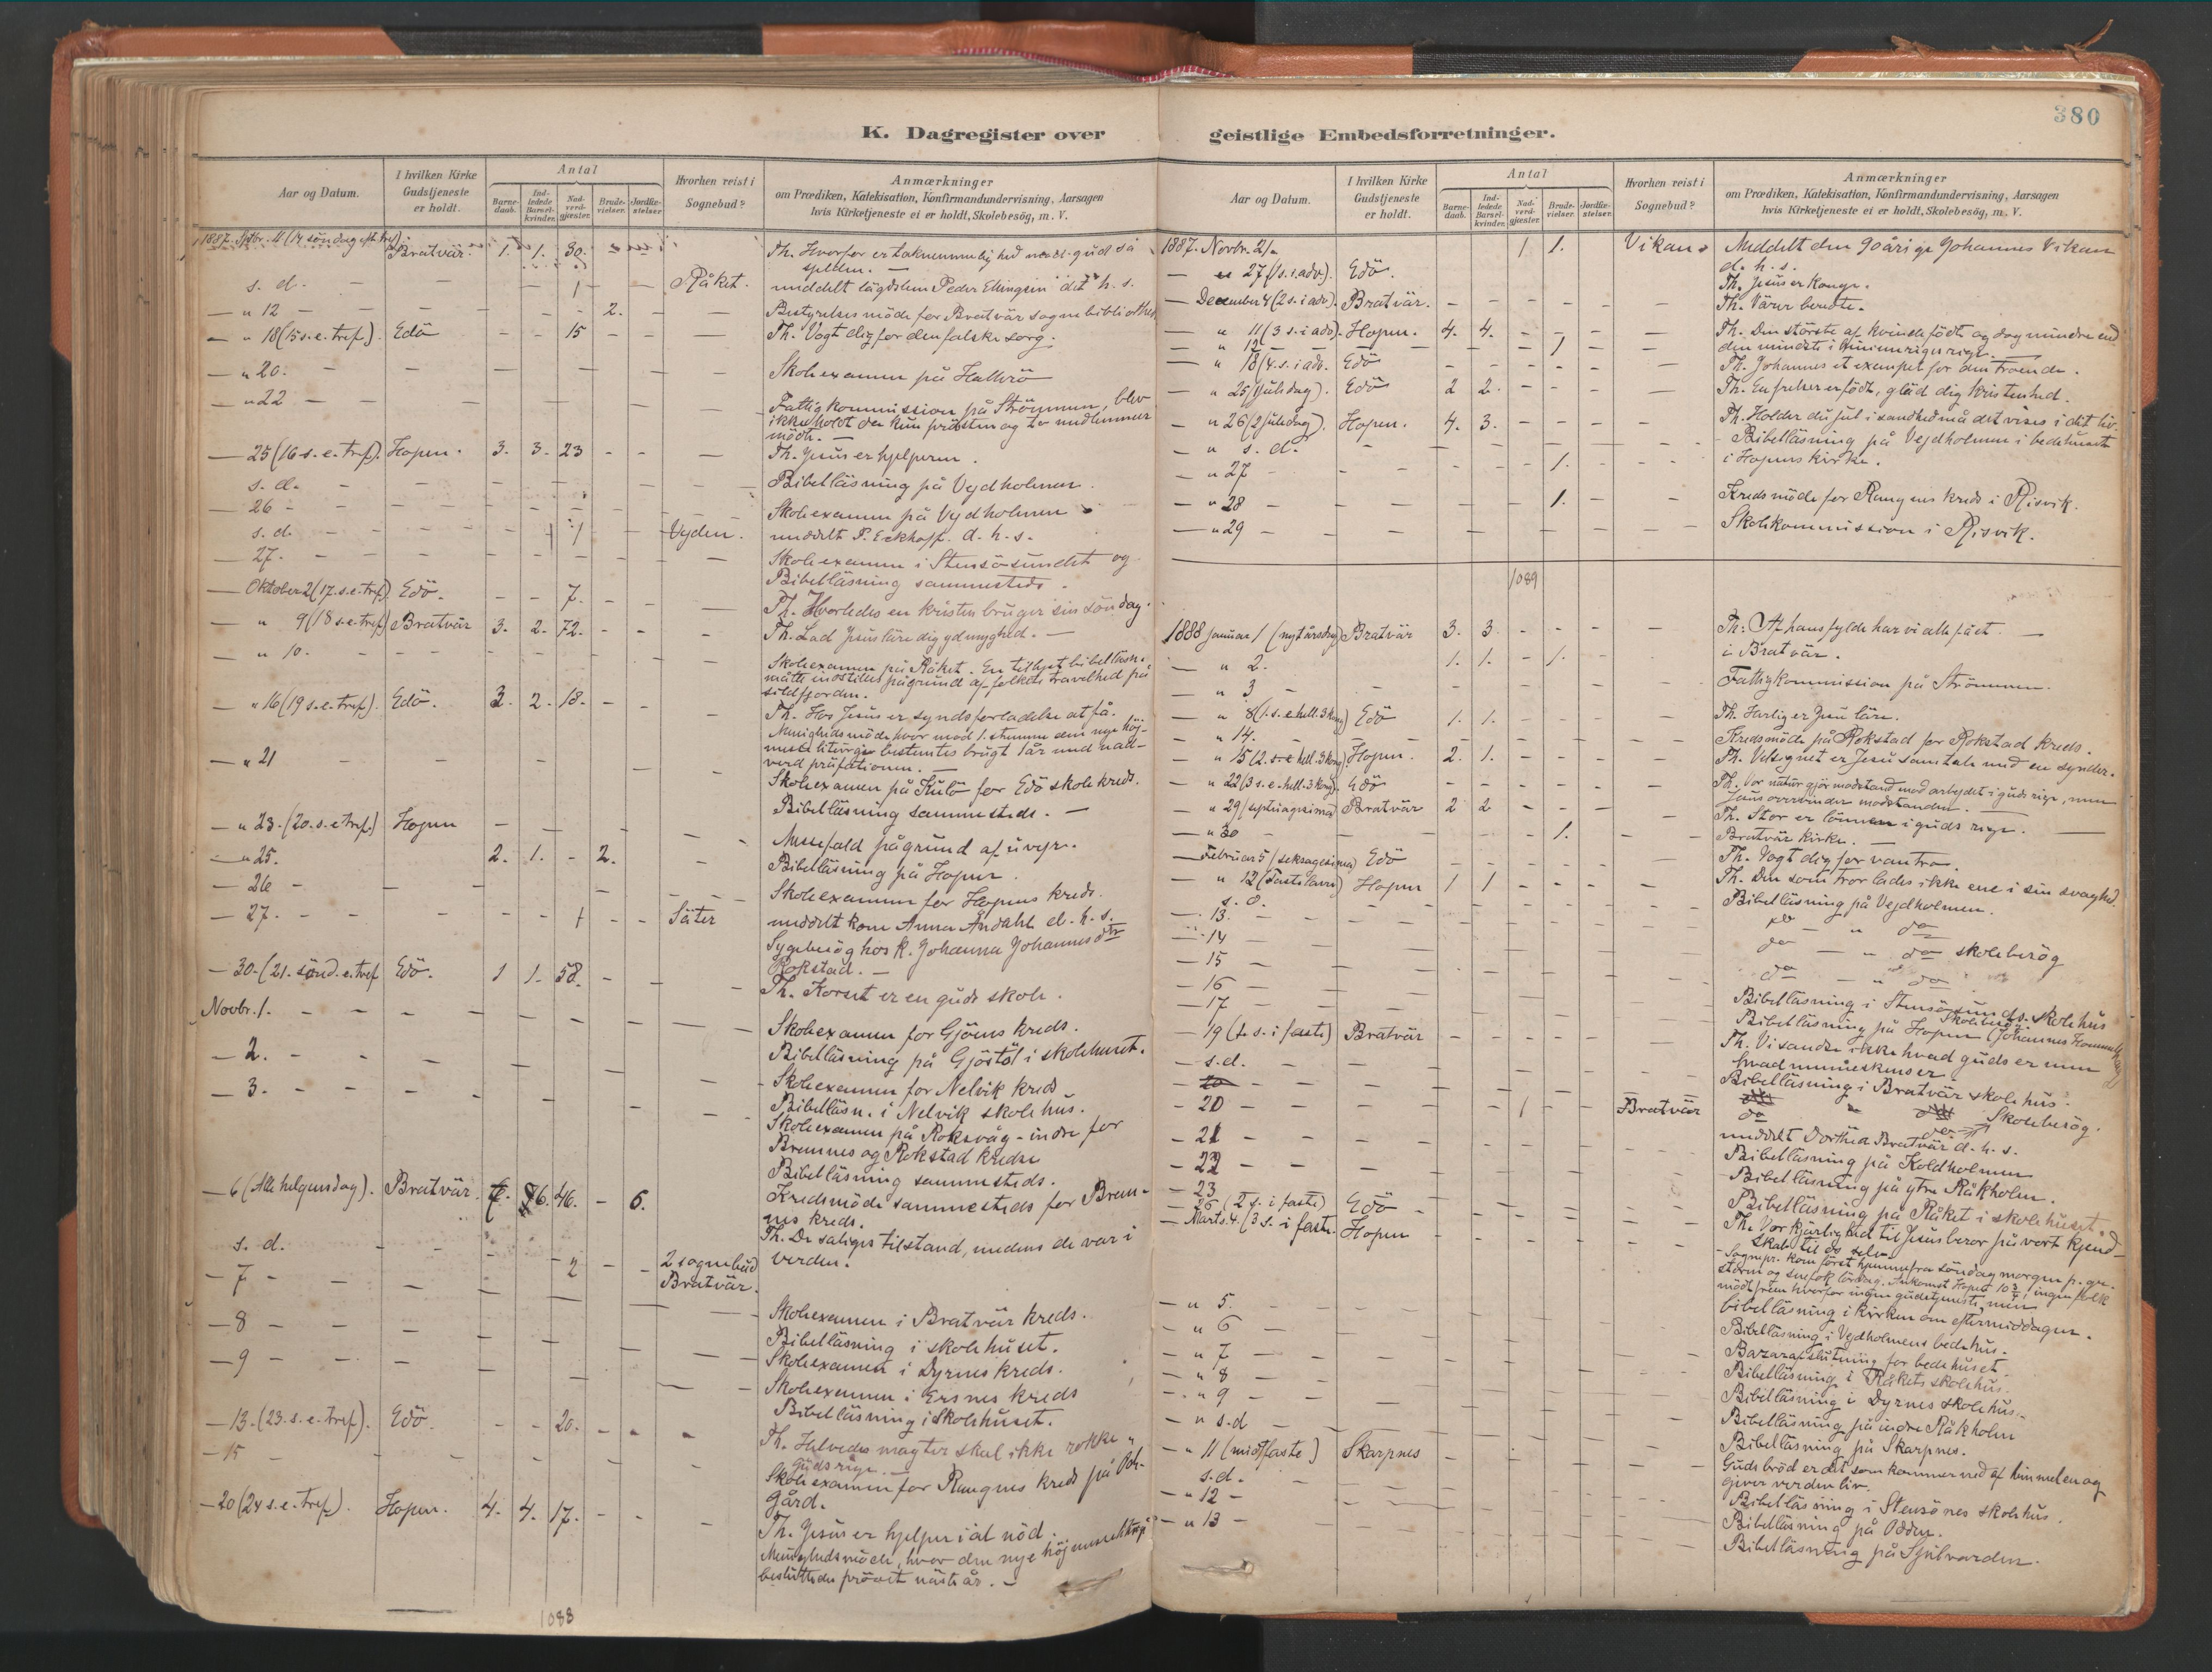 380
K. Dagregister over
geistlige Embedsforretninger.
Aar og Datum.
I hvilken Kirke Gudstjeneste er holdt.
Antal
Barne-daab.
Ind-ledede Barsel-kvinder.
Nad-verd-gjæster.
Brude-vielser.
Jordfæ-stelser.
Hvorhen reist i Sognebud?
Anmærkninger
om Prædiken, Katekisation, Konfirmandundervisning, Aarsagen
hvis Kirketjeneste ei er holdt, Skolebesög, m. V.
1887. Septbr. 11 (14 söndag eft. tref.) Bratvär. 1. 1. 30. Th. Hvorfor er taknemmelighed mod gud så
sjelden. —
s. d. 1 Råket. meddelt lägdslem Peder Ellingsen d. h. s.
" 12 2. Bestyrelsesmöde for Bratvär sognebibliothek
" 18 (15 s. e. tref.). Edö 15 Th. Vogt dig for den falske sorg.
" 20. Skolexamen på Hallerö
" 22 Fattigkommission på Strömmen, blev
ikke holdt da kun prästen og to medlemmer
mödte. —
25 (16 s. e. tref). Hopen. 3. 3. 23 Th. Jesus er hjelperen.
s. d. Bibelläsning på Vejdholmen.
26 Skolexamen på Vejdholmen
s. d. 1 Vejden. meddelt P. Eckhoff. d. h. s.
27. Skolexamen i Stensösundet og
Bibelläsning sammesteds.
Oktober 2 (17. s. e. tref) Edö. 7. Th. Hvorledes en kristen bruger sin söndag.
" 9 (18 s. e. tref) Bratvär 3. 2. 72. Th. Lad Jesus läre dig ydmyghed. —
" 10. Skolexamen på Råket. En tillyst bibelläsn.
måtte indstilles på grund af folkets travelhed på
sildfjorden.
" 16 (19 s. e. tref). Edö. 3. 2. 18. Th. Hos Jesus er syndsforladelse at få.
Menighedsmöde hvor mod 1. stemme den nye höj-
messeliturgi bestemtes brugt 1 år med nad-
verd präfationen. —
" 21 Skolexamen på Kulö for Edö skolekreds.
Bibelläsning sammesteds. —
" 23. (20. s. e. tref.) Hopen Messefald på grund af uvejr.
" 25. 2. 1. 2. Bibelläsning på Hopen.
26 Skolexamen for Hopens kreds.
27. 1 Säter meddelt kone Anna Andahl d. h. s.
Sygebesög hos k. Johanna Johannesdtr
Rokstad. —
30. (21. sönd. e. tref Edö. 1 1. 58. Th. Korset er en guds skole.
Novbr. 1. Skolexamen for Gjöens kreds.
Bibelläsning på Gjöstöl i skolehuset.
2. Skolexamen for Nelvik kreds
Bibelläsn. i Nelvik skolehus.
3. Skolexamen på Roksvåg - indre for
Bremnes og Rokstad kredse
Bibelläsning sammesteds.
Kredsmöde sammesteds for Brem-
nes kreds.
6 (Alle helgensdag). Bratvär. 6. 46. 6. Th. De saliges tilstand, medens de var i
verden.
s. d. 2 2 sognebud Bratvär.
7 Skolexamen i Bratvär kreds.
Bibelläsning i skolehuset.
8 Skolexamen i Dyrnes kreds.
9 Skolexamen i Ersnes kreds
Bibelläsning i Skolehuset.
13. (23. s. e. tref). Edö. 20. Th. Helvedes magter skal ikke rokke
guds rige. —
15 Skolexamen for Raugnes kreds på
gård.
20 (24 s. e. tref). Hopen. 4. 4. 17. Th. Jesus er hjelper i al nöd.
Menighedsmöde, hvor den nye höjmesseliturgi
besluttedes prövet näste år. —
1088
Aar og Datum.
I hvilken Kirke Gudstjeneste er holdt.
Antal
Barne-daab.
Ind-ledede Barsel-kvinder.
Nad-verd-gjæster.
Brude-vielser.
Jordfæ-stelser.
Hvorhen reist i Sognebud?
Anmærkninger
om Prædiken, Katekisation, Konfirmandundervisning, Aarsagen
hvis Kirketjeneste ei er holdt, Skolebesög, m. V.
1887. Novbr. 21. 1 1. Vikan. Meddelt den 90 årige Johannes Vikan
d. h. s.
27 (1 s. i. adv). Edö. Th. Jesus er konge.
December 4 (2 s. i adv). Bratvär. Th. Värer beredte.
" 11 (3 s. i adv). Hopen. 4. 4. Th. Den störste af kvinde födt og dog mindre end
den mindste i himmeriges rige.
" 12 1
" 18 (4. s. i adv. Edö Th. Johannes et exempel for den troende.
" 25 (1 juledag). Edö 2 2. Th. En frelser er födt, gläd dig kristenhed.
" 26 (2 juledag). Hopen. 4. 3. Th. Holder du jul i sandhed må det vises i dit liv.
" s. d. Bibelläsning på Vejdholmen i bedehuset
" 27 1. i Hopens kirke.
" 28 1. Kredsmöde for Raugnes kreds i Risvik.
" 29 Skolekommission i Risvik.
1089
1888 Januar 1 (nytårsdag) Bratvär 3. 3. Th: Af hans fylde har vi alle fået.
" 2. 1. 1. 1. i Bratvär.
" 3 Fattigkommission på Strömmen.
" 8 (1. s. e. hell. 3 kong) Edö 1. 1. Th. Herlig er Jesu läre.
" 14. Kredsmöde på Rokstad for Rokstad kreds.
" 15 (2. s. e. hell. 3 kong) Hopen. 2. 1. Th. Velsignet er Jesu samtale med en synder.
" 22 (3 s. e. hell. 3 kong). Edö Th. Vor natur gjör modstand mod arbejdet i guds rige, men
Jesus overvinder modstanden.
" 29 (septuagesima) Bratvär 2 2 Th. Stor er lönnen i guds rige.
" 30 1. Bratvär kirke. —
Februar 5 (seksagesima) Edö Th. Vogt dig for vantro.
" 12 (Fastelavn) Hopen 1 1 Th. Den som tror lades ikke ene i sin svaghed.
s. d. Bibelläsning på Vejdholmen.
13. do " do
14 do " do skolebesög
15 do " do
16 Bibelläsning i Stensösunds skolehus
Skolebesög
17 Bibelläsning på Hopen (Johannes
19 (1. s. i faste) Bratvär Th. Vi sandse ikke hvad guds er men
hvad menneskens er
s. d. Bibelläsning i Bratvär skolehus.
20 1 Bratvär do " do Skolebesög.
meddelt Dorthea Bratvär d. h. s.
21 Bibelläsning på Koldholmen
22 Bibelläsning på ytre Råkholm.
23 Bibelläsning på Råket i skolehuset
26 (2 s. i faste) Edö Th. Vor kjärlighed til Jesus beror på vort kjend-
skab til os selv.
Marts 4. (3 s. i faste. Hopen Sognepr. kom först hjemmefra söndag morgen p. gr.
storm og snefok lördag. Ankomst Hopen 10¾, ingen folk
mödt frem hvorfor ingen gudstjeneste, men
bibelläsning i kirken om eftermiddagen.
" 5. Bibelläsning i Vejdholmens bedehus.
" 6 Bazarafslutning for bedehuset
" 7 Bibelläsning i Råkets skolehus.
" 8 Bibelläsning i Dyrnes skolehus.
" 9 Bibelläsning på indre Råkholm
" s. d Bibelläsning på Skarpnes.
" 11 (midtfaste) Skarpnes Guds bröd er det som kommer ned af himmelen og
giver verden liv.
s. d. Bibelläsning i Stensönes skolehus.
" 12 Bibelläsning på Odden.
" 13 Bibelläsning på Sjulvarden.